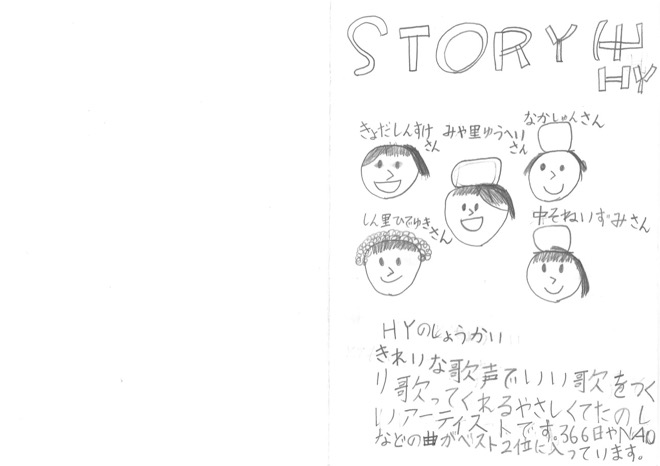 STORY
HY
きょだしんすけさん
みや里ゆうへいさん
なかしゅんさん
しん里ひでゆきさん
中そねいずみさん
HYのしょうかい
きれいな歌声でいい歌をつく
り歌ってくれるやさしくてたのし
いアーティストです。366日やNAO
などの曲がベスト2位に入っています。